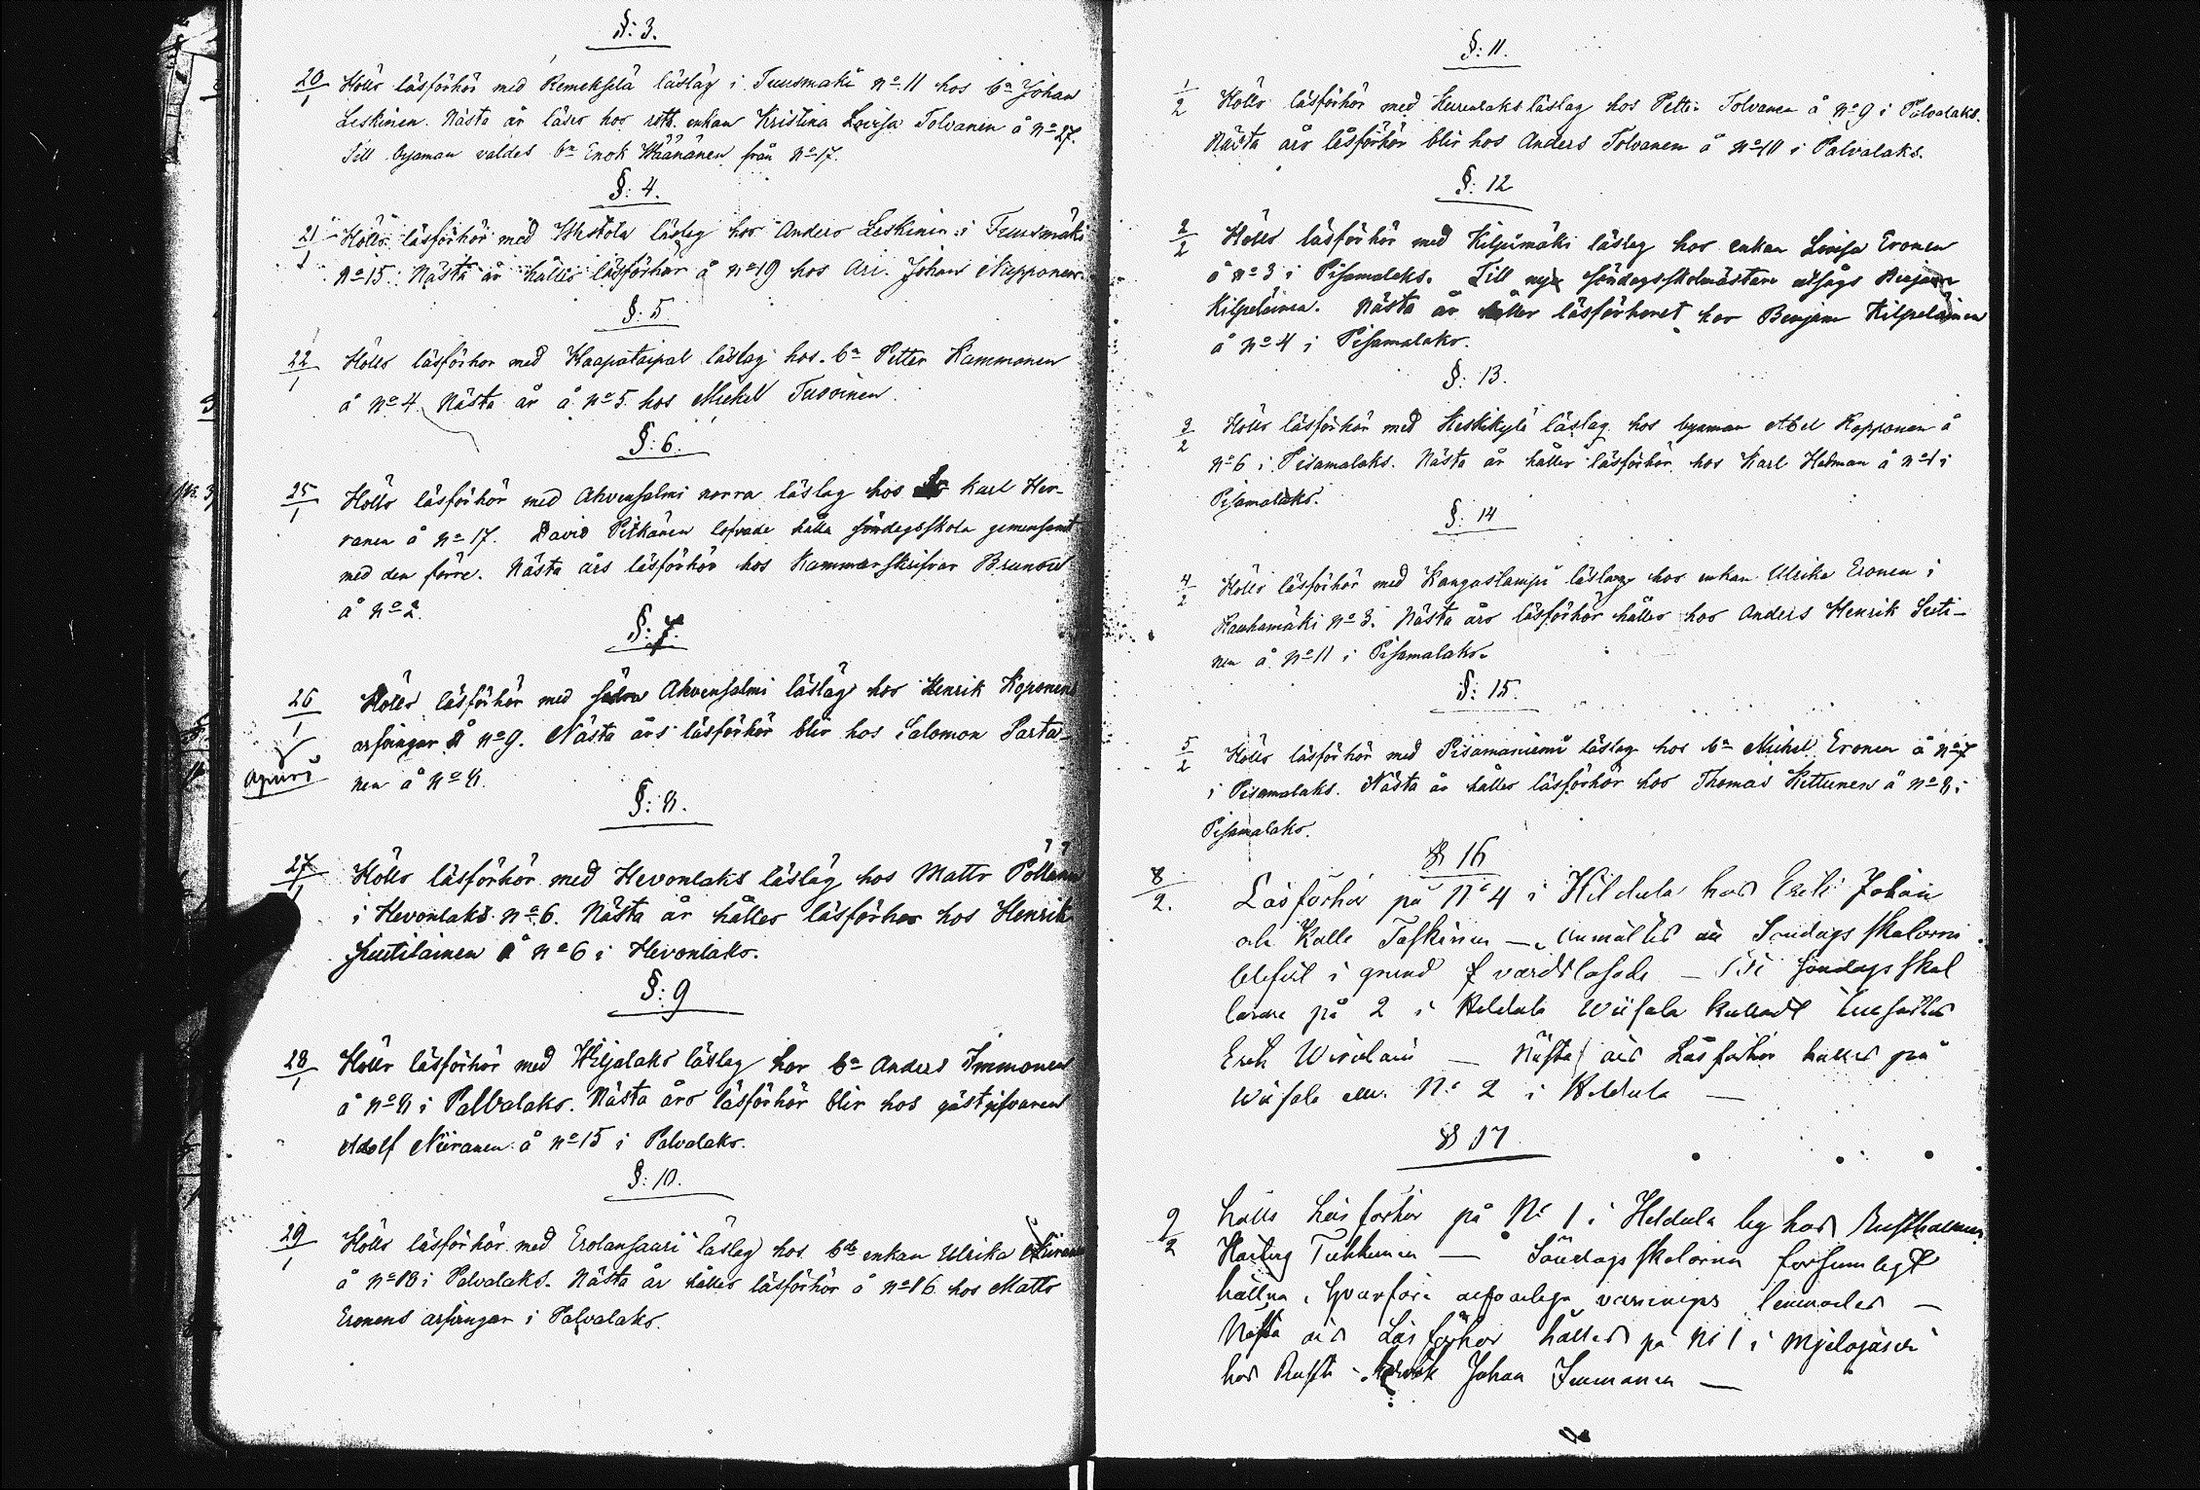 §: 3.
20/1 Hölls läsförhör med Remeksela läslag i Tuusmäki No 11 hos bn Johan
Leskinen. Nästa år läses hos rstt. enkan Kristina Lovisa Tolvanen å No 27.
Till byaman valdes bn Enok Wäänänen från No 17.
§: 4.
21/1 Hölls läsförhör med läslag hos Anders Leskinen i Tuusmäki
No 15. Nästa år hålles läsförhör å No 19 hos Arr. Johan Nupponen.
§: 5.
22/1 Hölls läsförhör med Haapataipal läslag hos bn Petter Kammonen
å No 4. Nästa år å No 5 hos Mickel Tuovinen.
§: 6.
25/1 Hölls läsförhör med Ahvensalmi norra läslag hos Karl Her-
ranen å No 17. David Pitkänen lofvade hålla söndagsskola gemensamt
med den förre. Nästa års läsförhör hos Kammarskrifvar Brunou
å No 2.
§: 7.
26/1 Hölls läsförhör med södra Ahvensalmi läslag hos Henrik Koponens
arfvingar å No 9. Nästa års läsförhör blir hos Salomon Parta-
nen å No 8.
§: 8.
27/1 Hölls läsförhör med Hevonlaks läslag hos Matts Pöllänen
i Hevonlaks No 6. Nästa år hålles läsförhör hos Henrik
Huttilainen å No 6 i Hevonlaks.
§: 9
28/1 Hölls läsförhör med Wiljalaks läslag hos bn Anders Immonen
å No 8 i Palvalaks. Nästa års läsförhör blir hos gästgifvaren
Adolf Niiranen å No 15 i Palvalaks.
§: 10.
29/1 Hölls läsförhör med Erolansaari läslag hos bde enkan Ulrika Niiranen
å No 18 i Palvalaks. Nästa år hålles läsförhör å No 16 hos Matts
Eronens arfvingar i Palvalaks.
§: 11.
1/2 Hölls läsförhör med läslag hos Petter Tolvanen å No 9 i Palvalaks.
Nästa års läsförhör blir hos Anders Tolvanen å No 10 i Palvalaks.
§: 12
2/2 Hölls läsförhör med Kilpimäki läslag hos enkan Lovisa Eronen
å No 3 i Pisamalaks. Till ny söndagsskolmästare utsågs Benjam
Kilpeläinen. Nästa år hålles läsförhöret hos Benjam Kilpeläinen
å No 4 i Pisamalaks.
§: 13.
3/2 Hölls läsförhör med Keskikylä läslag hos byaman Abel Kopponen å
No 6 i Pisamalaks. Nästa år hålles läsförhör hos Karl Halman å No 1 i
Pisamalaks.
§: 14
4/2 Hölls läsförhör med Kangaslampi läslag hos enkan Ulrika Eronen i
Rauhamäki No 3. Nästa års läsförhör hålles hos Anders Henrik Suti-
nen å No 11 i Pisamalaks.
§: 15.
5/2 Hölls läsförhör med Pisamaniemi läslag hos bn Mickel Eronen å No 7
i Pisamalaks. Nästa år hålles läsförhör hos Thomas Kettunen å No 8 i
Pisamalaks.
§ 16
8/2. Läsförhör på No 4 i Hildula hos Erik Johan
och Kalle Taskinen — anmältes att Söndags skolorna
blefvit i grund f vårdslösade — Till söndags skol
lärare på 2 i Hildula
Erik — Nästa års Läsförhör hålles på
No 2 i Hildula —
§ 17
9/2 hölls Läsförhör på No 1 i Hildula by hos Rusthållaren
Tukkunen — Söndags skolorna försumligt
hållna, hvarföre alfvarliga varningar lemnades —
Nästa års Läsförhör hålles på No 1 i
hos Johan Immonen —